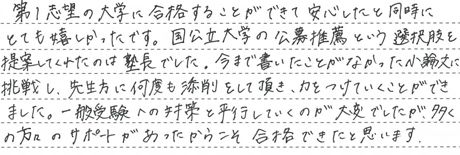 第1志望の大学に合格することができて安心したと同時に
とても嬉しかったです。国公立大学の公募推薦という選択肢を
提案してくれたのは塾長でした。今まで書いたことがなかった小論文に
挑戦し、先生方に何度も添削をして頂き、力をつけていくことができ
ました。一般受験への対策と平行していくのが大変でしたが多く
の方々のサポートがあったからこそ合格できたと思います。